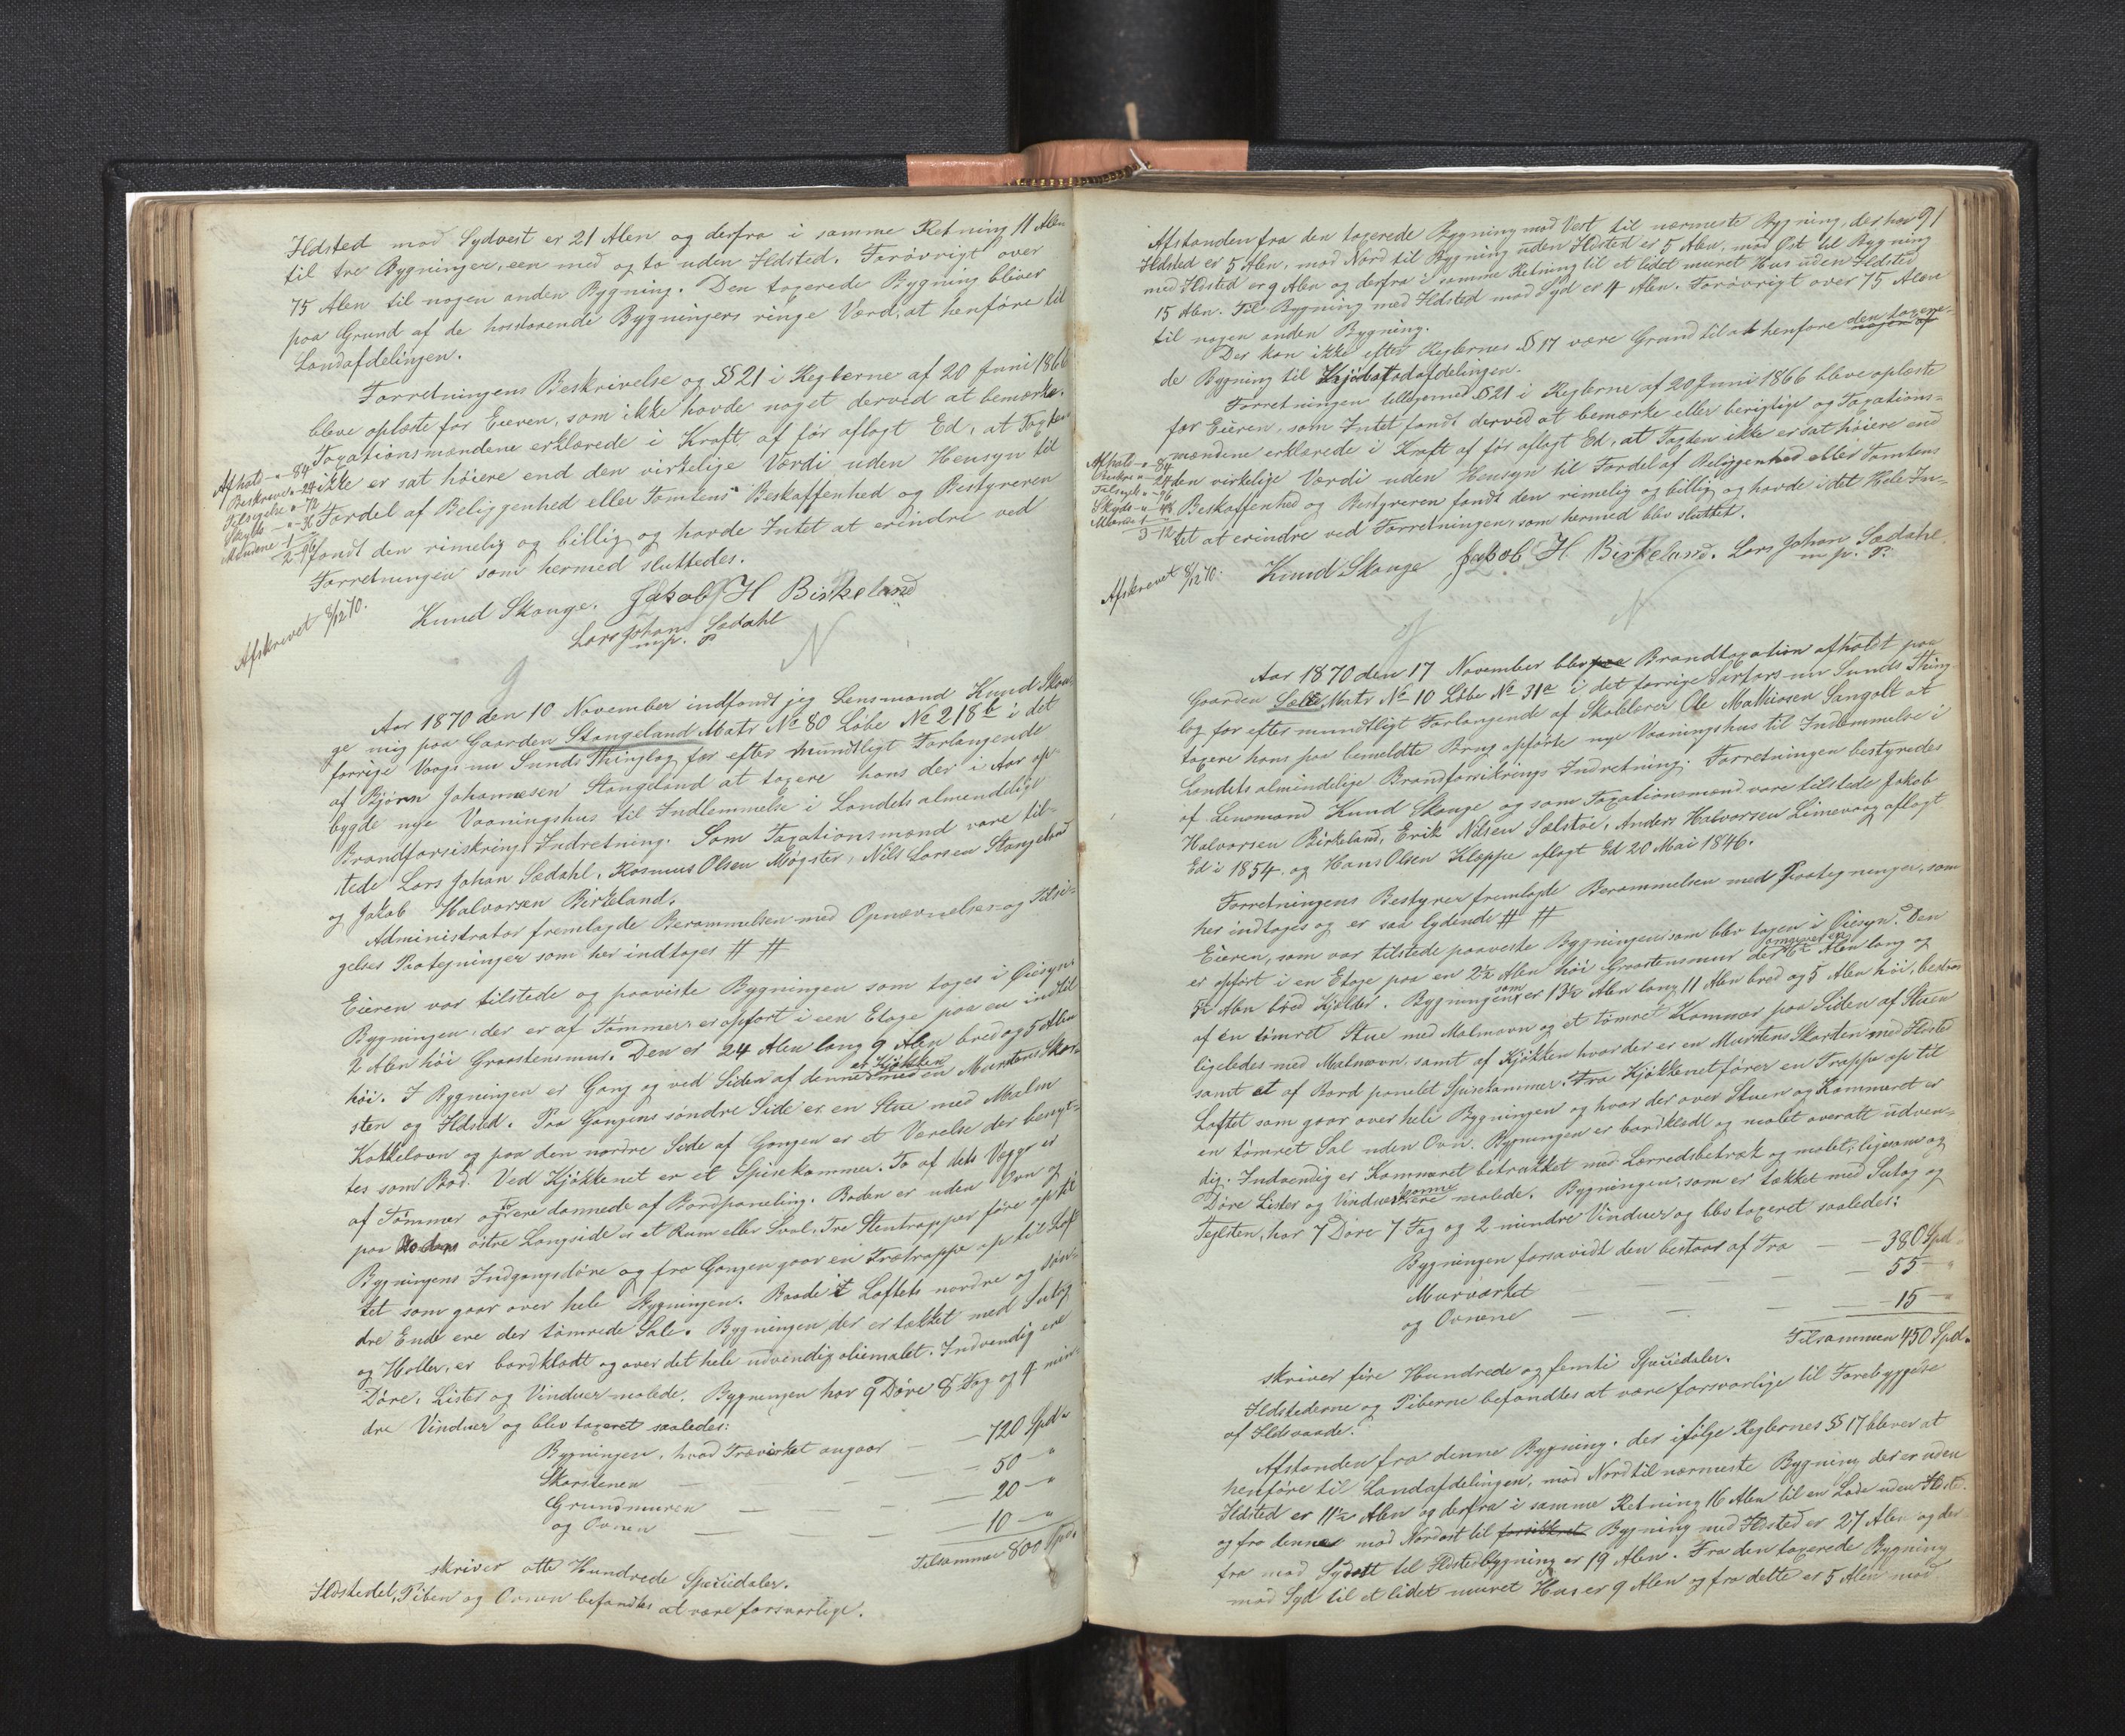 Ildsted mod Sydvest er 21 Alen og derfra i samme Retning 11 Alen
til tre Bygninger, een med og to uden Ildsted. Forøvrigt over
75 Alen til nogen anden Bygning. Den taxerede Bygning bliver
paa Grund af de hosstaaende Bygningers ringe Værd, at henføre til
Landafdelingen.
Forretningens Beskrivelse og §§ 21 i Reglerne af 20 Juni 1866
bleve oplæste for Eieren, som ikke havde noget derved at bemærke.
Taxationsmændene erklærede i Kraft af før aflagt Ed, at Taxten
ikke er sat høiere end den virkelige Værdi uden Hensyn til
Fordel af Beliggenhed eller Tomtens Beskaffenhed og Bestyreren
fandt den rimelig og billig og havde Intet at erindre ved
Forretningen som hermed sluttedes.
Afhold - " - 84
Beskrivel " - 24
Tilsigelse " - 72
Skyds - " - 36
Mændene 1 "
2 - 96
Knud Skauge. Jakob H Birkeland
Lars Johan Sædahl
m. p. P.
Afskrevet 8/12 70.
Aar 1870 den 10 November indfandt jeg Lensmand Knud Skau-
ge mig paa Gaarden Stangeland Matr No 80 Løbe No 218b i det
forrige Vaags nu Sunds Thinglag for efter mundtligt Forlangende
af Bjørn Johannesen Stangeland at taxere hans der i Aar op-
bygde nye Vaaningshus til Indlemmelse i Landets almindelige
Brandforsiskrings Indretning. Som Taxationsmænd vare til-
stede Lars Johan Sædahl, Rasmus Olsen Møgster, Nils Larsen Stangeland
og Jakob Halvorsen Birkeland.
Administrator fremlagde Berammelsen med Opnævnelses og Tilsi-
gelses Paategninger som her indtages # #
Eieren var tilstede og paaviste Bygningen som toges i Øiesyn.
Bygningen, der er af Tømmer, er opført i een Etage paa en indtil
2 Alen høi Graastensmur. Den er 24 Alen lang 9 Alen bred og 5 Alen
høi. I Bygningen er Gang og ved Siden af denne er Kjøkken med en Murstens Skor-
sten og Ildsted. Paa Gangens søndre Side er en Stue med Malm
Kakkelovn og paa den nordre Side af Gangen er et Værelse der benyt-
tes som Bod. Ved Kjøkkenet er et Spisekammer. To af dets Vægge er
af Tømmer og to ere dannede af Bordpaneling. Boden er uden Ovn og
paa østre Langside er et Rum eller Sval. Tre Stentrapper føre op til
Bygningens Indgangsdøre og fra Gangen gaar en Trætrappe op til Lof-
tet som gaar over hele Bygningen. Baade i Loftets nordre og søn-
dre Ende ere der tømrede Sale. Bygningen, der er tækket med Sutag
og Heller, er bordklædt og over det hele udvendig oliemalet. Indvendig ere
Døre, Lister og Vinduer malede. Bygningen har 9 Døre 8 Fag og 4 min-
dre Vinduer og blev taxeret saaledes:
Bygningen, hvad Træværket angaar — — 720 Spd "
Skorstenen — — — — 50 — "
Grundmuren — — — 20 — "
og Ovnen — — — — 10 — "
Tilsammen 800 Spd.
skriver otte Hundrede Speciedaler.
Ildstedet, Piben og Ovnen befandtes at være forsvarlige.
91
Afstanden fra den taxerede Bygning mod Vest til nærmeste Bygning, der har
Ildsted er 5 Alen, mod Nord til Bygning uden Ildsted er 5 Alen, mod Øst til Bygning
med Ildsted er 9 Alen og derfra i samme Retning til et lidet muret Hus uden Ildsted
15 Alen. Til Bygning med Ildsted mod Syd er 4 Alen. Forøvrigt over 75 Alen
til nogen anden Bygning.
Der kan ikke efter Reglernes § 17 være Grund til at henføre den taxere-
nogen af
de Bygning til Kjøbstadafdelingen.
Forretningen tilligemed § 21 i Reglerne af 20 Juni 1866 bleve oplæste
for Eieren, som Intet fandt derved at bemærke eller berigtige og Taxations-
mændene erklærede i Kraft af før aflagt Ed, at Taxten ikke er sat høiere end
den virkelige Værdi uden Hensyn til Fordel af Beliggenhed eller Tomtens
Beskaffenhed og Bestyreren fandt den rimelig og billig og havde i det Hele In-
tet at erindre ved Forretningen, som hermed blev sluttet.
Afhold - " - 84
Beskr " - 24
Tilsigels " - 96
Skyds - " - 48
Mænd 1 "
3 - 12
Knud Skauge Jakob H Birkeland. Lars Johan Sædahl
m. p. P.
Afskrevet 8/12 70.
Aar 1870 den 17 November blev paa Brandtaxation afholdt paa
Gaarden Matr No 10 Løbe No 31a i det forrige nu Sunds Thing-
lag for efter mundtligt Forlangende af Skolelærer Ole Mathiasen Sangolt at
taxere hans paa bemeldte Brug opførte nye Vaaningshus til Indlemmelse i
Landets almindelige Brandforsikrings Indretning. Forretningen bestyredes
af Lensmand Knud Skauge og som Taxationsmænd vare tilstede Jakob
Halvorsen Birkeland, Erik Nilsen Sælstøe, Anders Halvorsen Limevaag aflagt
Ed i 1854, og Hans Olsen Kleppe aflagt Ed 20 Mai 1846.
Forretningens Bestyrer fremlagde Berammelsen med Paategninger, som
her indtages og er saa lydende # #
Eieren, som var tilstede paaviste Bygningen som blev tagen i Øiesyn. Den
er opført i en Etage paa en 2½ Alen høi Graastensmur der omgiver en Alen lang og
5½ Alen bred Kjælder. Bygningen, som er 13½ Alen lang 11 Alen bred og 5 Alen høi, bestaar
af én tømret Stue med Malmovn og et tømret Kammer paa Siden af Stuen
ligeledes med Malmovn, samt af Kjøkken hvor der er en Murstens Skorsten med Ildsted
samt et af Bord panelet Spisekammer. Fra Kjøkkenet fører en Trappe op til
Loftet som gaar over hele Bygningen og hvor der over Stuen og Kammeret er
en tømret Sal uden Ovn. Bygningen er bordklædt og malet overalt udven-
dig. Indvendig er Kammeret betrukket med Lærredsbetræk og malet, ligesom og
Døre Lister og Vindueskarme malede. Bygningen, som er tækket med Sutag og
Teglsten, har 7 Døre 7 Fag og 2 mindre Vinduer og blev taxeret saaledes:
Bygningen forsavidt den bestaar af Træ — — 380 Spd "
Murværket — — — — 55 — "
og Ovnene — — — — 15 — "
Tilsammen 450 Spd.
skriver fire Hundrede og femti Speciedaler.
Ildstederne og Piberne befandtes at være forsvarlige til Forebyggelse
af Ildsvaade.
Afstanden fra denne Bygning, der ifølge Reglernes §§ 17 bliver at
henføre til Landafdelingen, mod Nord til nærmeste Bygning der er uden
Ildsted er 11½ Alen og derfra i samme Retning 16 Alen til en Lade uden Ildsted.
og fra denne mod Nordost til forsikkret Bygning med Ildsted er 27 Alen og der-
fra mod Sydost til Ildstedbygning er 19 Alen. Fra den taxerede Bygning
mod Syd til et lidet muret Hus er 9 Alen og fra dette er 5 Alen mod